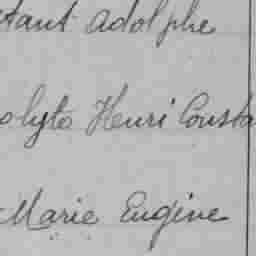 tant Adolphe
olyte Henri Consta
Marie Eugène